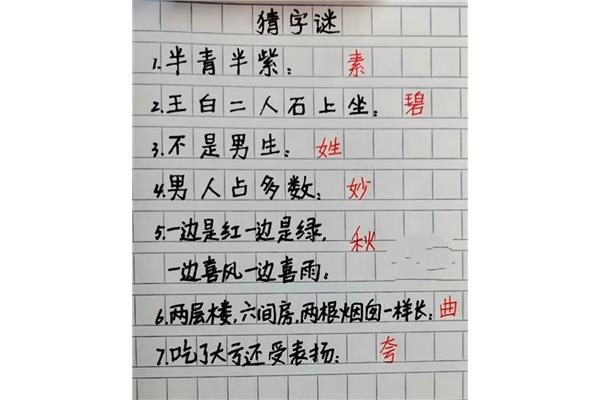 猜字谜
1.半青半紫: 素
2.王白二人石上坐: 碧
3.不是男生: 姓
4.男人占多数: 妙
5.一边是红一边是绿, 秋
一边喜风一边喜雨:
6.两层楼,六间房,两根烟囱一样长: 曲
7.吃了大亏还受表扬: 夸